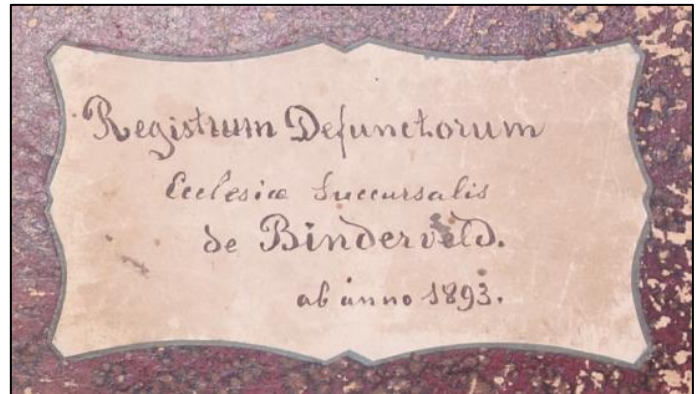 Registrum Defunctorum
Ecclesiæ Succursalis
de Binderveld.
ab anno 1893.